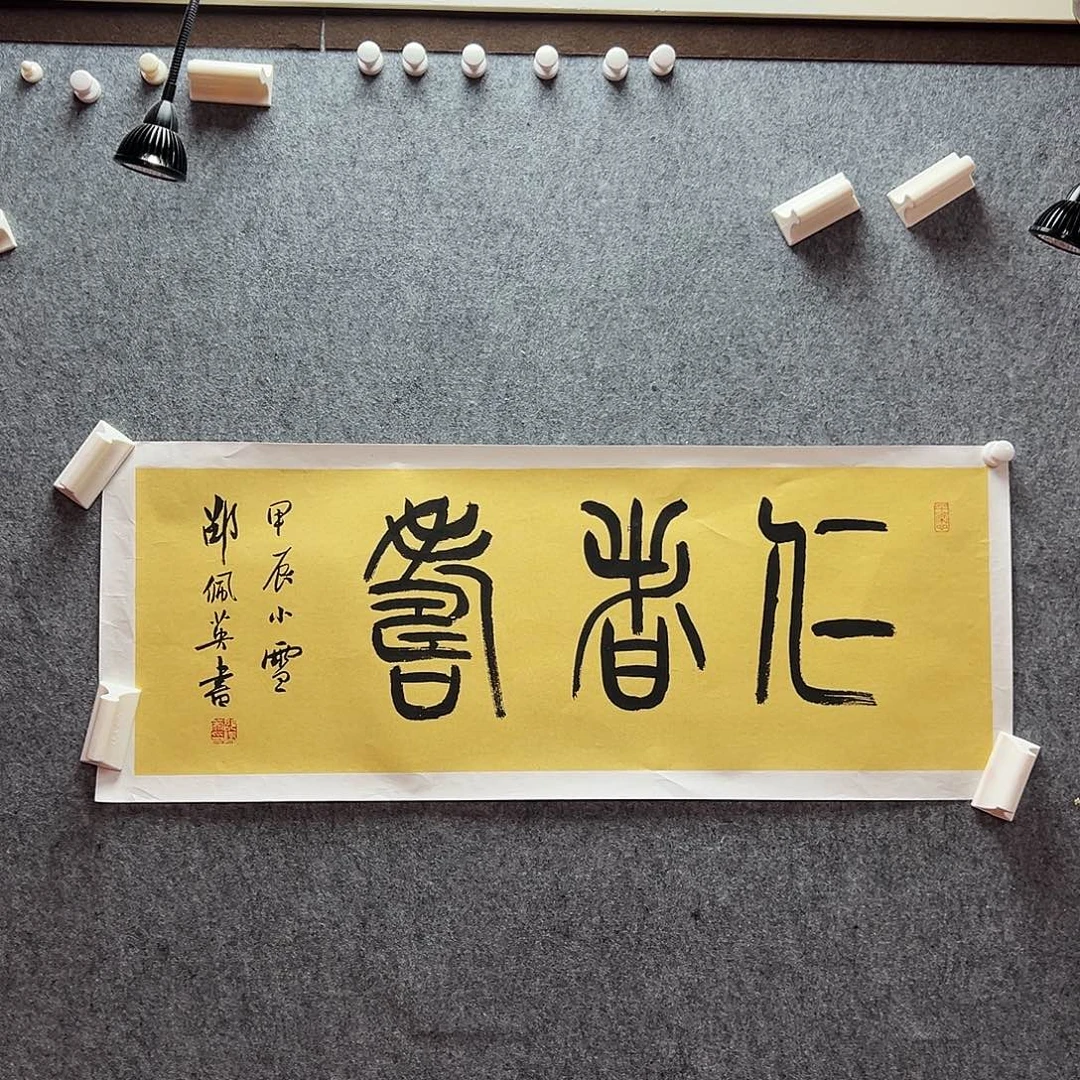 仁者壽
甲辰小雪
鄧佩英書